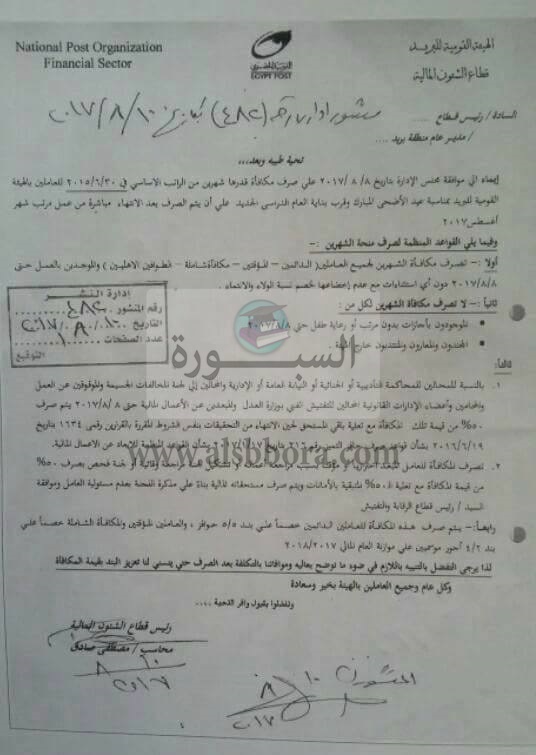 National Post Organization
Financial Sector
EGYPT POST
الهيئة القومية للبريد
قطاع الشئون المالية
السادة / رئيس قطاع ....
/ مدير عام منطقة بريد ....
منشور ادارى رقم (٤٨٢) بتاريخ ٢٠١٧/٨/١٠
تحية طيبه وبعد،،،
إيماء الي موافقة مجلس الإدارة بتاريخ ٢٠١٧/ ٨/ ٨ علي صرف مكافأة قدرها شهرين من الراتب الاساسي في ٢٠١٥/٦/٣٠ للعاملين بالهيئة
القومية للبريد بمناسبة عيد الأضحى المبارك وقرب بداية العام الدراسى الجديد علي أن يتم الصرف بعد الانتهاء مباشرة من عمل مرتب شهر
أغسطس ٢٠١٧
وفيما يلي القواعد المنظمة لصرف منحة الشهرين :-
أولا :- تصرف مكافأة الشهرين لجميع العاملين( الدائمين – المؤقتين – مكافأة شاملة – الطوافين الاهليين ) والموجدين بالعمل حتى
٢٠١٧/٨/٨ دون أي استثناءات مع عدم إخضاعها لخصم نسبة الولاء والانتماء .
ثانيا :- لا تصرف مكافاة الشهرين لكل من :-
• الموجودون بأجازات بدون مرتب أو رعاية طفل حتى ٢٠١٧/٨/٨
• المجندون والمعارون والمنتدبون خارج الهيئة .
إدارة النشر
رقم المنشور ٤٨٢
التاريخ ٢٠١٧/٨/١٠
عدد الصفحات ١
التوقيع
السبورة
www.alsbbora.com
ثالثا:
١. بالنسبة للمحالين للمحاكمة التأديبية أو الجنائية أو النيابة العامة أو الإدارية والمحالين إلي لجنة المخالفات الجسيمة والموقوفين عن العمل
والمحامين وأعضاء الإدارات القانونية المحالين للتفتيش الفني بوزارة العدل والمبعدين عن الأعمال المالية حتى ٢٠١٧/ ٨/ ٨ يتم صرف
٥٠% من قيمة تلك المكافأة مع تعلية باقي المستحق لحين الانتهاء من التحقيقات بنفس الشروط المقررة بالقرارين رقمى ١٦٣٤ بتاريخ
٢٠١٦/٦/١٩ بشأن قواعد صرف حافز التميز رقم ٢١٦ بتاريخ ٢٠١٧/١/١٧ بشأن القواعد المنظمة للإبعاد عن الاعمال المالية.
٢. تصرف المكافأة للعامل المبعد احترازيا أو مؤقتا بسبب مراجعة أعماله أو تشكيل لجنة مراجعة وقائية أو لجنة فحص بصرف ٥٠%
من قيمة المكافأة مع تعلية الـ ٥٠% المتبقية بالأمانات ويتم صرف مستحقاته المالية بناءً علي مذكرة اللجنة بعدم مسئولية العامل وموافقة
السيد / رئيس قطاع الرقابة والتفتيش
رابعاً:- يتم صرف هذه المكافأة للعاملين الدائمين خصماً علي بند ٥/٥ حوافز ، والعاملين المؤقتين والمكافأة الشاملة خصماً علي
بند ٤/٢ أجور موسميين علي موازنة العام المالي ٢٠١٨/٢٠١٧
لذا يرجي التفضل بالتنبيه باللازم في ضوء ما توضح بعاليه وموافاتنا بالتكلفة بعد الصرف حتى يتسنى لنا تعزيز البند بقيمة المكافأة
وكل عام وجميع العاملين بالهيئة بخير وسعادة
وتفضلوا بقبول وافر التحية ،،،،
رئيس قطاع الشئون المالية
محاسب / مصطفى صادق
٨/١٠
٢٠١٧
٨/١٠
٢٠١٧